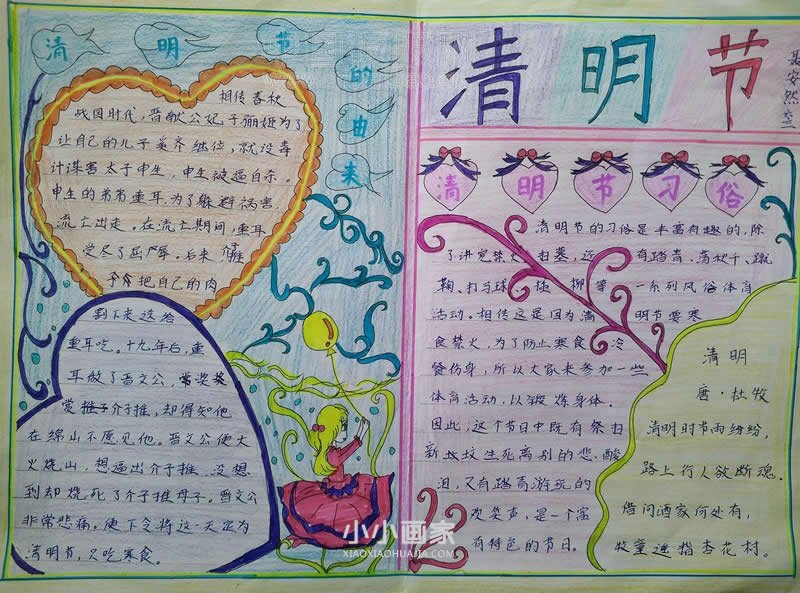 清明节的由来
相传春秋
战国时代，晋献公妃子骊姬为了
让自己的儿子奚齐继位，就设毒
计谋害太子申生，申生被逼自杀。
申生的弟弟重耳，为了躲避祸害，
流亡出走。在流亡期间，重耳
受尽了屈辱。后来
介把自己的肉
割下来送给
重耳吃。十九年后，重
耳做了晋文公，
介子推，却得知他
在绵山不愿见他。晋文公便大
火烧山，想逼出介子推，没想
到却烧死了介子推母子。晋文公
非常悲痛。便下令将这一天定为
清明节，只吃寒食。
小小画家
XIAOXIAOHUAJIA.COM
清明节
聂安然
清明节习俗
清明节的习俗是丰富有趣的，除
了讲究禁火、扫墓，还有踏青、荡秋千、蹴
鞠、打马球、插柳等一系列风俗体育
活动。相传这是因为清明节要寒
食禁火，为了防止寒食冷
餐伤身，所以大家来参加一些
体育活动，以锻炼身体。
因此，这个节日中既有祭扫
新坟生死离别的悲酸
泪，又有踏青游玩的
欢笑声，是一个富
有特色的节日。
清明
唐·杜牧
清明时节雨纷纷，
路上行人欲断魂。
借问酒家何处有，
牧童遥指杏花村。